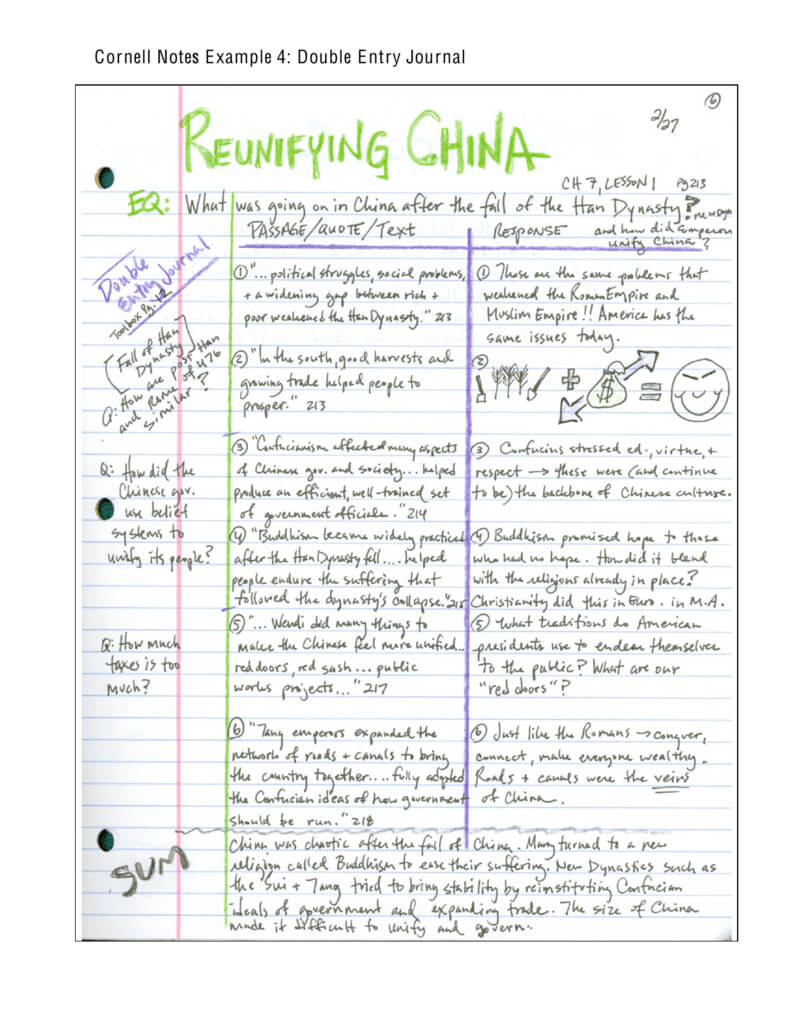 Cornell Notes Example 4: Double Entry Journal
6
2/27
REUNIFYING CHINA
CH 7, LESSON 1 Pg 213
EQ: What was going on in China after the fall of the Han Dynasty?
and how did Emperor
unify China?
PASSAGE/QUOTE/TEXT
RESPONSE
Double
Entry Journal
Toolbox Pg. 12
[Fall of Han
Dynasty]
Q: How are post Han
and Rome of 476
similar?
① "... political struggles, social problems,
+ a widening gap between rich +
poor weakened the Han Dynasty." 213
① These are the same problems that
weakened the Roman Empire and
Muslim Empire!! America has the
same issues today.
② "In the south, good harvests and
growing trade helped people to
prosper." 213
②
+ $ =
Q: How did the
Chinese gov.
use belief
systems to
unify its people?
③ "Confucianism affected many aspects
of Chinese gov. and society... helped
produce an efficient, well-trained set
of government officials." 214
③ Confucius stressed ed., virtue, +
respect → these were (and continue
to be) the backbone of Chinese culture.
④ "Buddhism became widely practiced
after the Han Dynasty fell.... helped
people endure the suffering that
followed the dynasty's collapse." 215
④ Buddhism promised hope to those
who had no hope. How did it blend
with the religions already in place?
Christianity did this in Euro. in M.A.
Q: How much
taxes is too
much?
⑤ "... Wendi did many things to
make the Chinese feel more unified...
red doors, red sash... public
works projects..." 217
⑤ What traditions do American
presidents use to endear themselves
to the public? What are our
"red doors"?
⑥ "Tang emperors expanded the
network of roads + canals to bring
the country together.... fully adopted
the Confucian ideas of how government
should be run." 218
⑥ Just like the Romans → conquer,
connect, make everyone wealthy.
Roads + canals were the veins
of China.
SUM
China was chaotic after the fall of China. Many turned to a new
religion called Buddhism to ease their suffering. New Dynasties such as
the Sui + Tang tried to bring stability by reinstituting Confucian
ideals of government and expanding trade. The size of China
made it difficult to unify and govern.